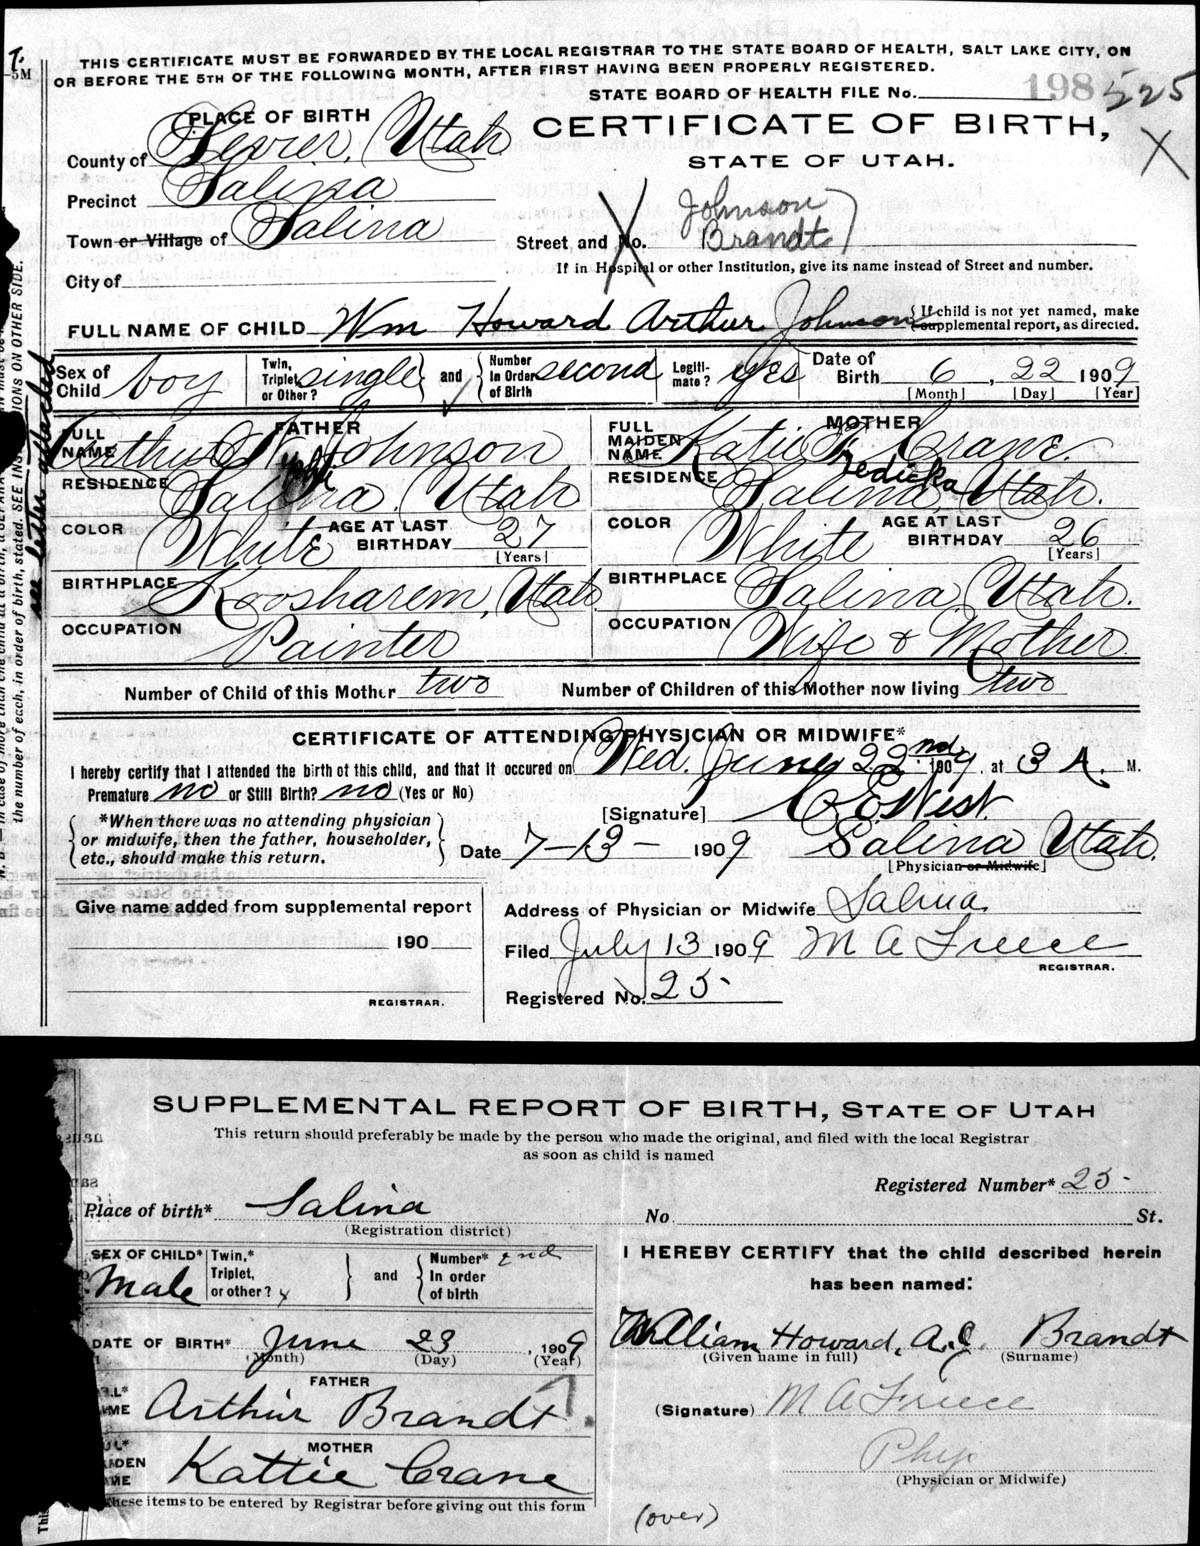 T.
-5M
THIS CERTIFICATE MUST BE FORWARDED BY THE LOCAL REGISTRAR TO THE STATE BOARD OF HEALTH, SALT LAKE CITY, ON
OR BEFORE THE 5TH OF THE FOLLOWING MONTH, AFTER FIRST HAVING BEEN PROPERLY REGISTERED.
STATE BOARD OF HEALTH FILE No. 198 525
PLACE OF BIRTH
CERTIFICATE OF BIRTH,
STATE OF UTAH.
County of Sevier, Utah
Precinct Salina
Town or Village of Salina
City of
Johnson
Street and No. Brandt
If in Hospital or other Institution, give its name instead of Street and number.
FULL NAME OF CHILD Wm Howard Arthur Johnson {If child is not yet named, make
supplemental report, as directed.
Sex of Child boy Twin, Triplet, or Other? single and Number In Order of Birth second Legiti-mate? yes Date of Birth 6, 22 1909
[Month] [Day] [Year]
FATHER
FULL NAME Arthur W. Johnson
RESIDENCE Salina, Utah
COLOR White AGE AT LAST BIRTHDAY 27 [Years]
BIRTHPLACE Koosharem, Utah
OCCUPATION Painter
MOTHER
FULL MAIDEN NAME Katie Crane.
RESIDENCE Salina, Utah.
COLOR White AGE AT LAST BIRTHDAY 26 [Years]
BIRTHPLACE Salina, Utah.
OCCUPATION Wife & Mother.
Number of Child of this Mother two Number of Children of this Mother now living two
CERTIFICATE OF ATTENDING PHYSICIAN OR MIDWIFE*
I hereby certify that I attended the birth of this child, and that it occured on Wed. June 22nd, 1909, at 3 A. M.
Premature no or Still Birth? no (Yes or No)
[Signature] C E West.
*When there was no attending physician
or midwife, then the father, householder,
etc., should make this return.
Date 7-13- 1909 Salina Utah.
[Physician or Midwife]
Give name added from supplemental report
190
REGISTRAR.
Address of Physician or Midwife Salina
Filed July 13 1909 M A Freece
REGISTRAR.
Registered No. 25-
the number of each, in order of birth, stated. SEE INSTRUCTIONS ON OTHER SIDE.
see letter attached
SUPPLEMENTAL REPORT OF BIRTH, STATE OF UTAH
This return should preferably be made by the person who made the original, and filed with the local Registrar
as soon as child is named
Registered Number* 25-
Place of birth* Salina
(Registration district)
No. St.
SEX OF CHILD* Male Twin,* Triplet, or other? and Number* In order of birth 2nd
I HEREBY CERTIFY that the child described herein
has been named:
DATE OF BIRTH* June 23, 1909
(Month) (Day) (Year)
William Howard, A.J. Brandt
(Given name in full) (Surname)
FATHER
Arthur Brandt
(Signature) M A Freece
MOTHER
Kattie Crane
Phys
(Physician or Midwife)
these items to be entered by Registrar before giving out this form
(over)